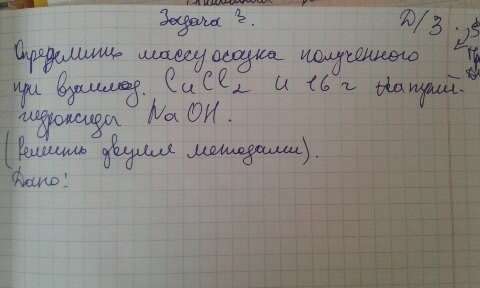 Задача 3.
Д/З.
Определить массу осадка полученного
при взаимод. CuCl2 и 16 г натрий
гидроксида NaOH.
(решить двумя методами).
Дано: